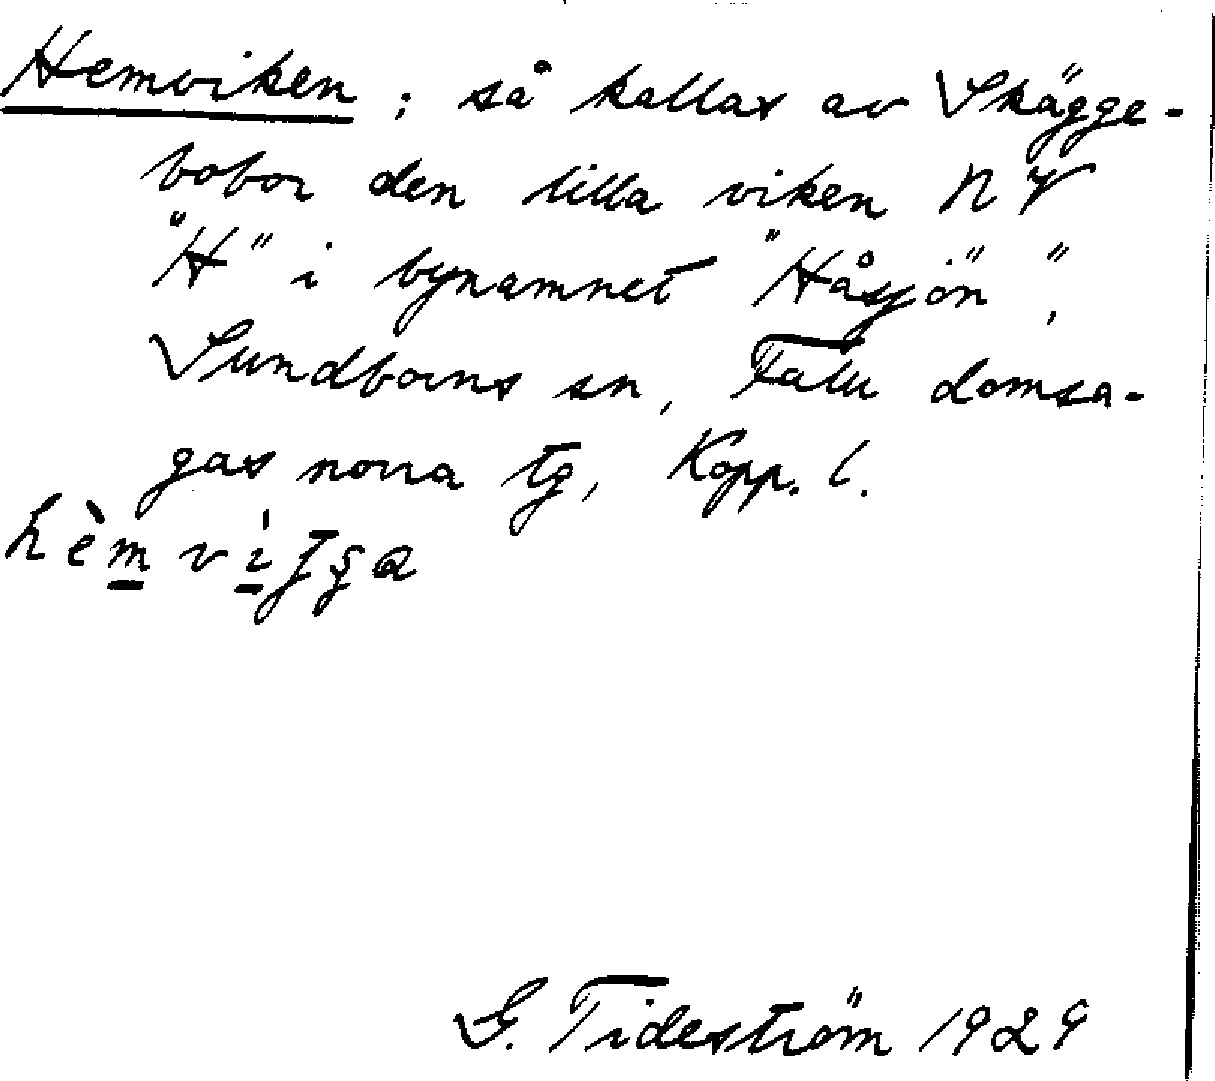 Hemviken ; så kallas av Skägge-
bobor den lilla viken N V
"H" i bynamnet "Håsjön",
Sundborns sn, Falu domsa-
gas norra tg, Kopp. l.
G. Tideström 1929